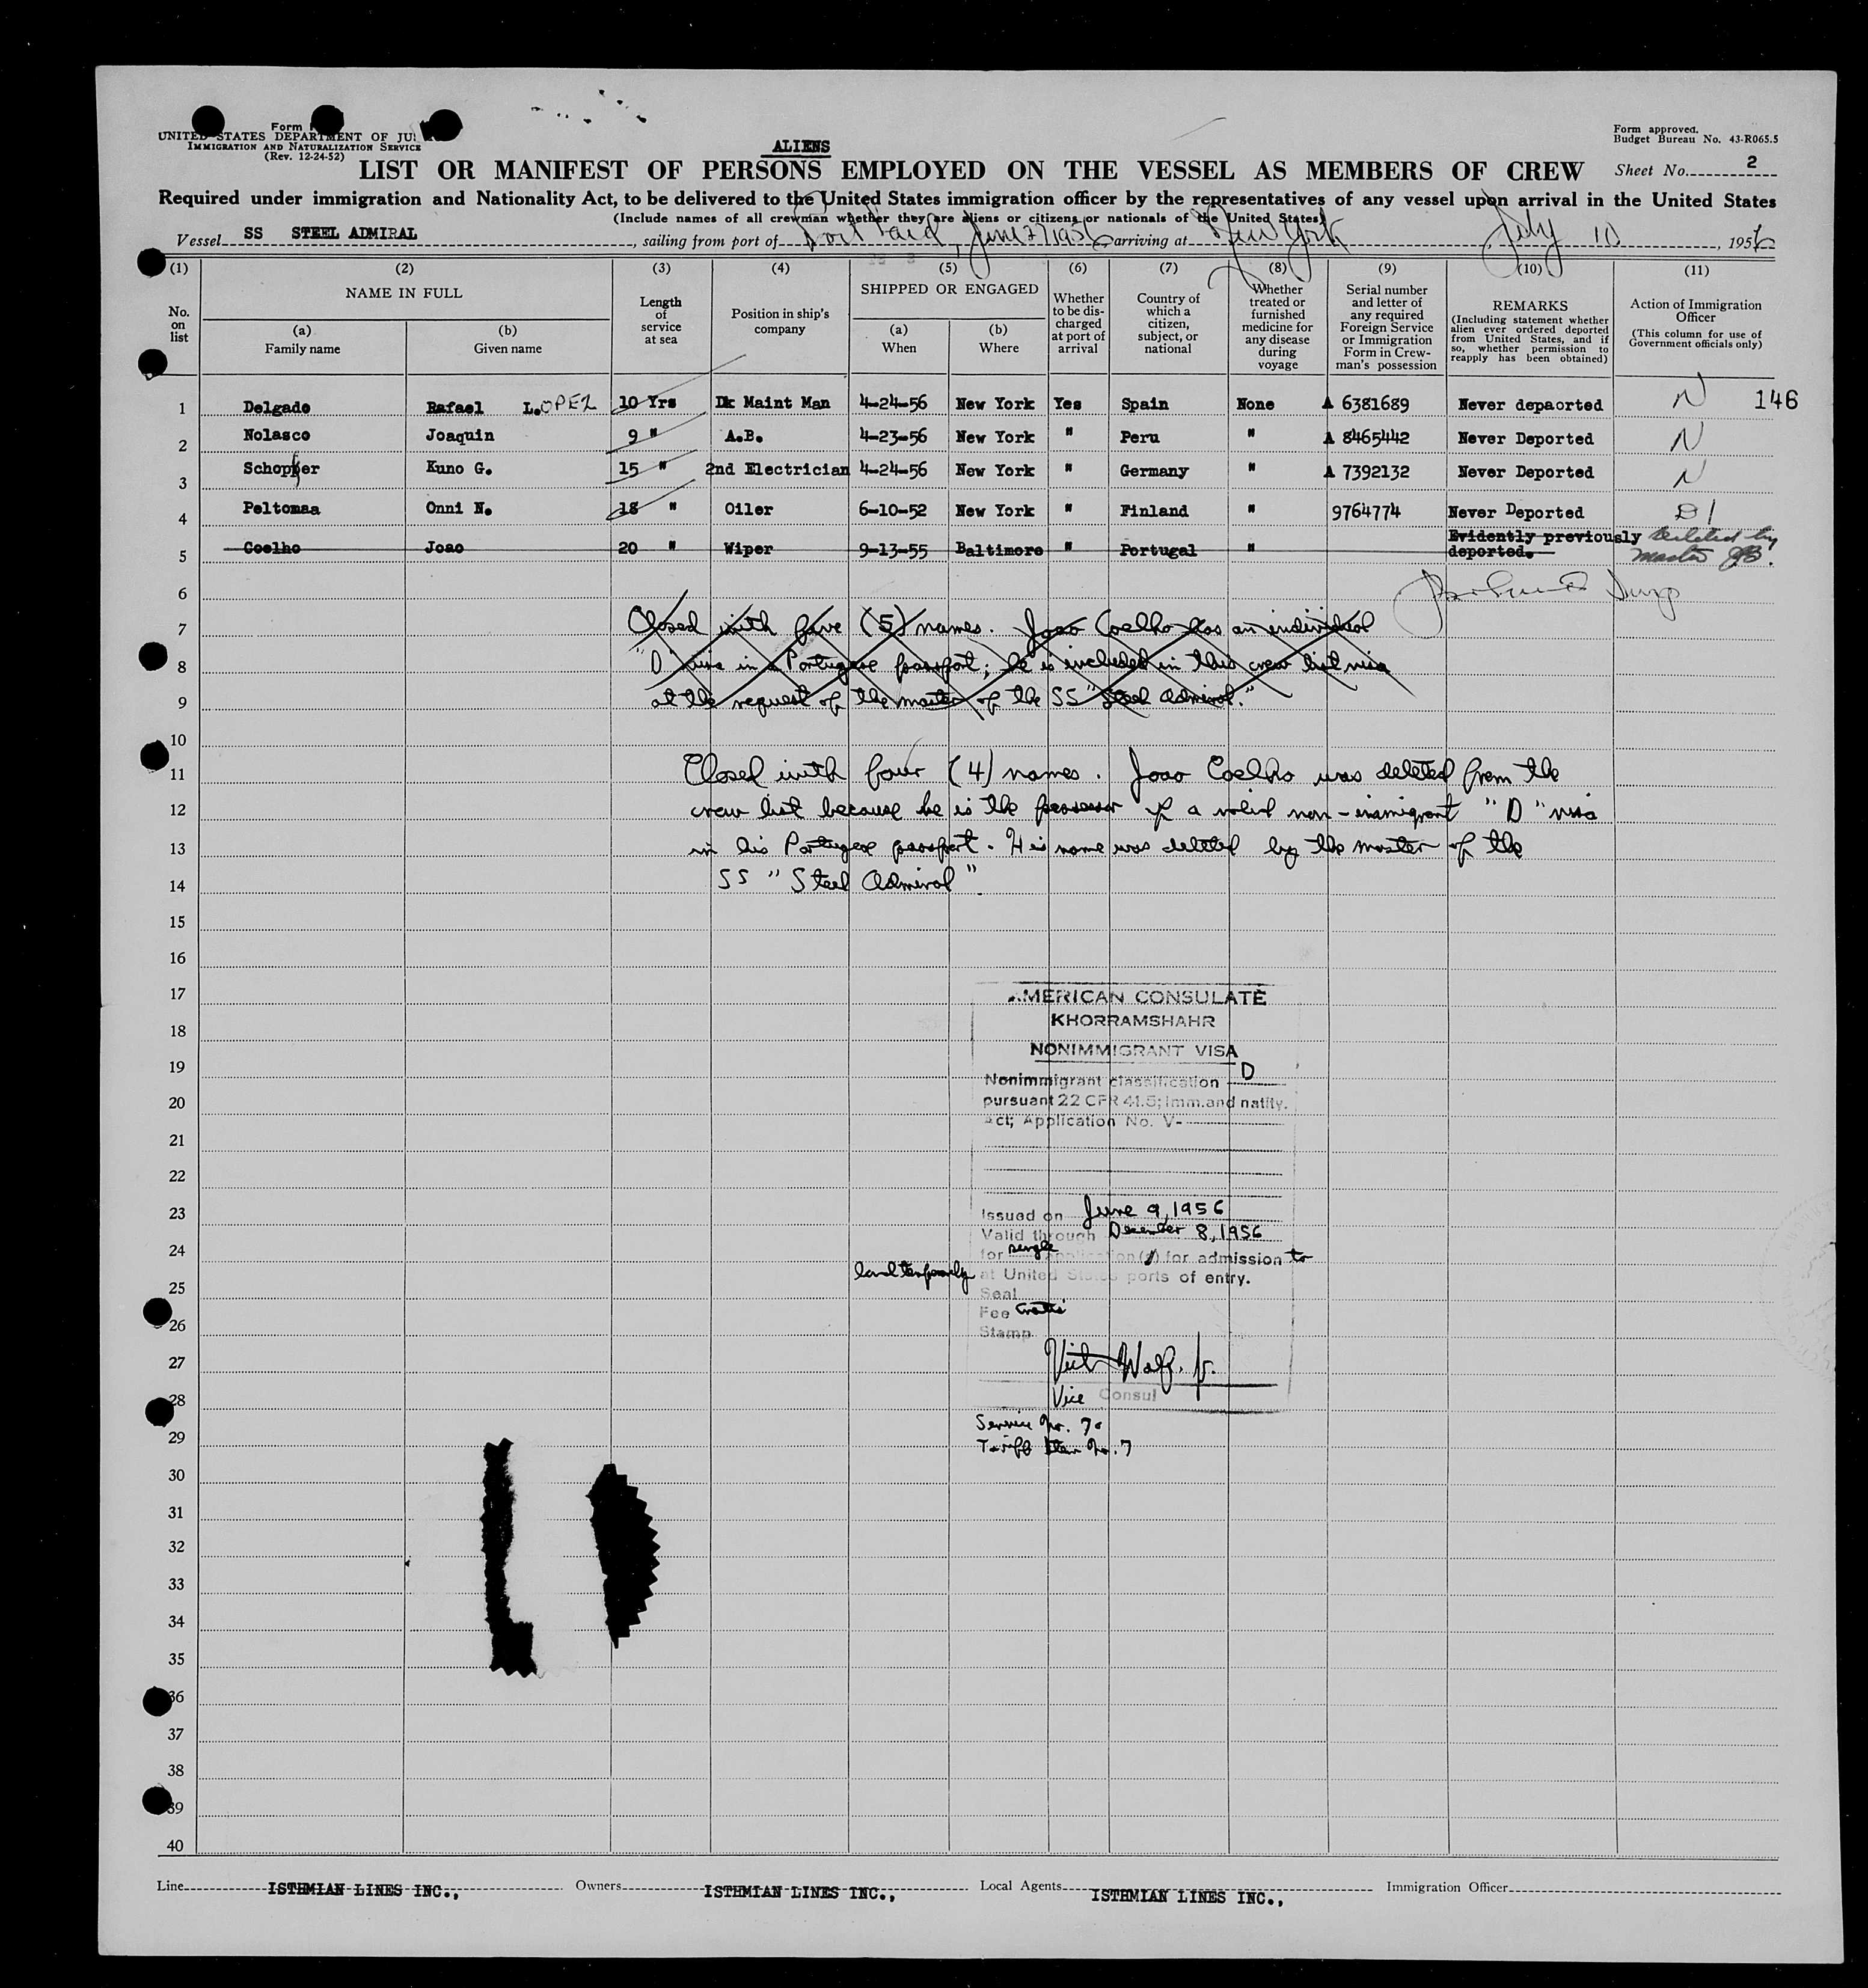 Form
UNITED STATES DEPARTMENT OF JUS
IMMIGRATION AND NATURALIZATION SERVICE
(Rev. 12-24-52)
Form approved.
Budget Bureau No. 43-R065.5
ALIENS
LIST OR MANIFEST OF PERSONS EMPLOYED ON THE VESSEL AS MEMBERS OF CREW
Sheet No. 2
Required under immigration and Nationality Act, to be delivered to the United States immigration officer by the representatives of any vessel upon arrival in the United States
(Include names of all crewman whether they are aliens or citizens or nationals of the United States)
Vessel SS STEEL ADMIRAL, sailing from port of Port Said, June 27 1956 arriving at New York, July 10, 1956
(1) (2) (3) (4) (5) (6) (7) (8) (9) (10) (11)
No. on list
NAME IN FULL
(a) Family name
(b) Given name
Length of service at sea
Position in ship's company
SHIPPED OR ENGAGED
(a) When
(b) Where
Whether to be discharged at port of arrival
Country of which a citizen, subject, or national
Whether treated or furnished medicine for any disease during voyage
Serial number and letter of any required Foreign Service or Immigration Form in Crewman's possession
REMARKS
(Including statement whether alien ever ordered deported from United States, and if so, whether permission to reapply has been obtained)
Action of Immigration Officer
(This column for use of Government officials only)
1 Delgado Rafael LOPEZ 10 Yrs Dk Maint Man 4-24-56 New York Yes Spain None A 6381689 Never depaorted N 146
2 Nolasco Joaquin 9 " A.B. 4-23-56 New York " Peru " A 8465442 Never Deported N
3 Schopfer Kuno G. 15 " 2nd Electrician 4-24-56 New York " Germany " A 7392132 Never Deported N
4 Peltomaa Onni N. 18 " Oiler 6-10-52 New York " Finland " 9764774 Never Deported D1
5 Coelho Joao 20 " Wiper 9-13-55 Baltimore " Portugal " Evidently previously deported. Deleted by master
6
7 Closed with five (5) names. Joao Coelho has an individual
8 "D" visa in a Portugese passport; he is included in this crew list visa
9 at the request of the master of the SS "Steel Admiral."
10
11 Closed with four (4) names. Joao Coelho was deleted from the
12 crew list because he is the possessor of a valid non-immigrant "D" visa
13 in his Portugese passport. His name was deleted by the master of the
14 SS "Steel Admiral".
15
16
17 AMERICAN CONSULATE
KHORRAMSHAHR
18
NONIMMIGRANT VISA
19 Nonimmigrant classification D
20 pursuant 22 CFR 41.5; Imm. and natlty.
Act; Application No. V-
21
22
23 Issued on June 9, 1956
Valid through December 8, 1956
24 for single application(s) for admission to
land temporarily at United States ports of entry.
25 Seal
Fee Gratis
26 Stamp
27 Wolf, Jr.
28 Vice Consul
Service No. 70
29 Tariff Item No. 7
30
31
32
33
34
35
36
37
38
39
40
Line ISTHMIAN LINES INC., Owners ISTHMIAN LINES INC., Local Agents ISTHMIAN LINES INC., Immigration Officer